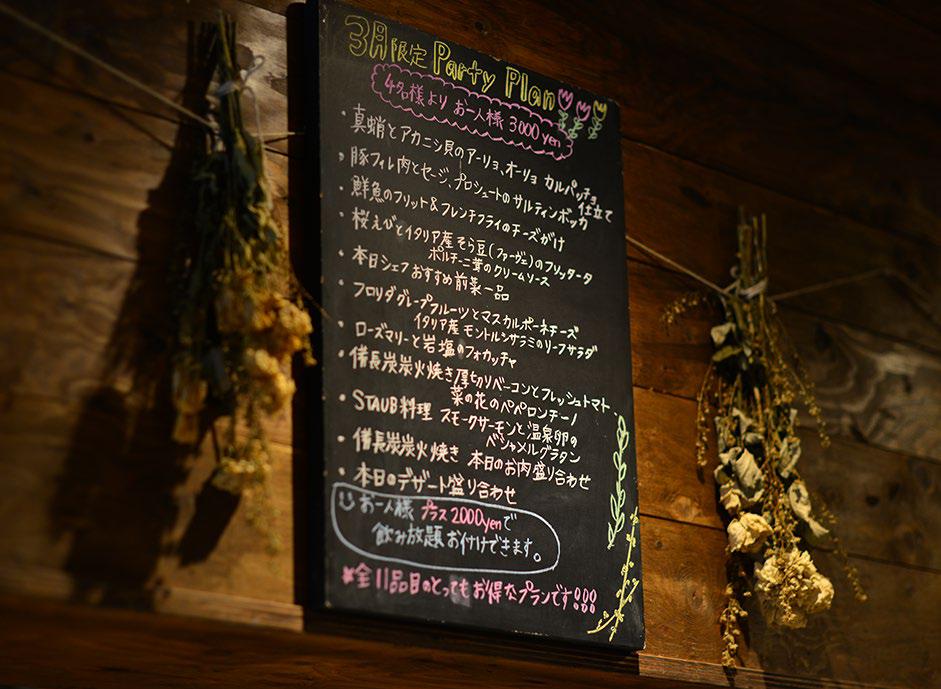 3月限定 Party Plan
4名様より お一人様 3000yen
・真蛸とアカニシ貝のアーリョ、オーリョ カルパッチョ
仕立て
・豚フィレ肉とセージ、プロシュートのサルティンボッカ
・鮮魚のフリット&フレンチフライのチーズがけ
・桜えびとイタリア産そら豆(ファーヴェ)のフリッタータ
ポルチーニ茸のクリームソース
・本日シェフおすすめ前菜一品
・フロリダグレープフルーツとマスカルポーネチーズ
イタリア産モントルシサラミのリーフサラダ
・ローズマリーと岩塩のフォカッチャ
・備長炭炭火焼き厚切りベーコンとフレッシュトマト
菜の花のペペロンチーノ
・STAUB料理 スモークサーモンと温泉卵の
ベシャメルグラタン
・備長炭炭火焼き 本日のお肉盛り合わせ
・本日のデザート盛り合わせ
お一人様 プラス2000yenで
飲み放題お付けできます。
※全11品目のとってもお得なプランです!!!